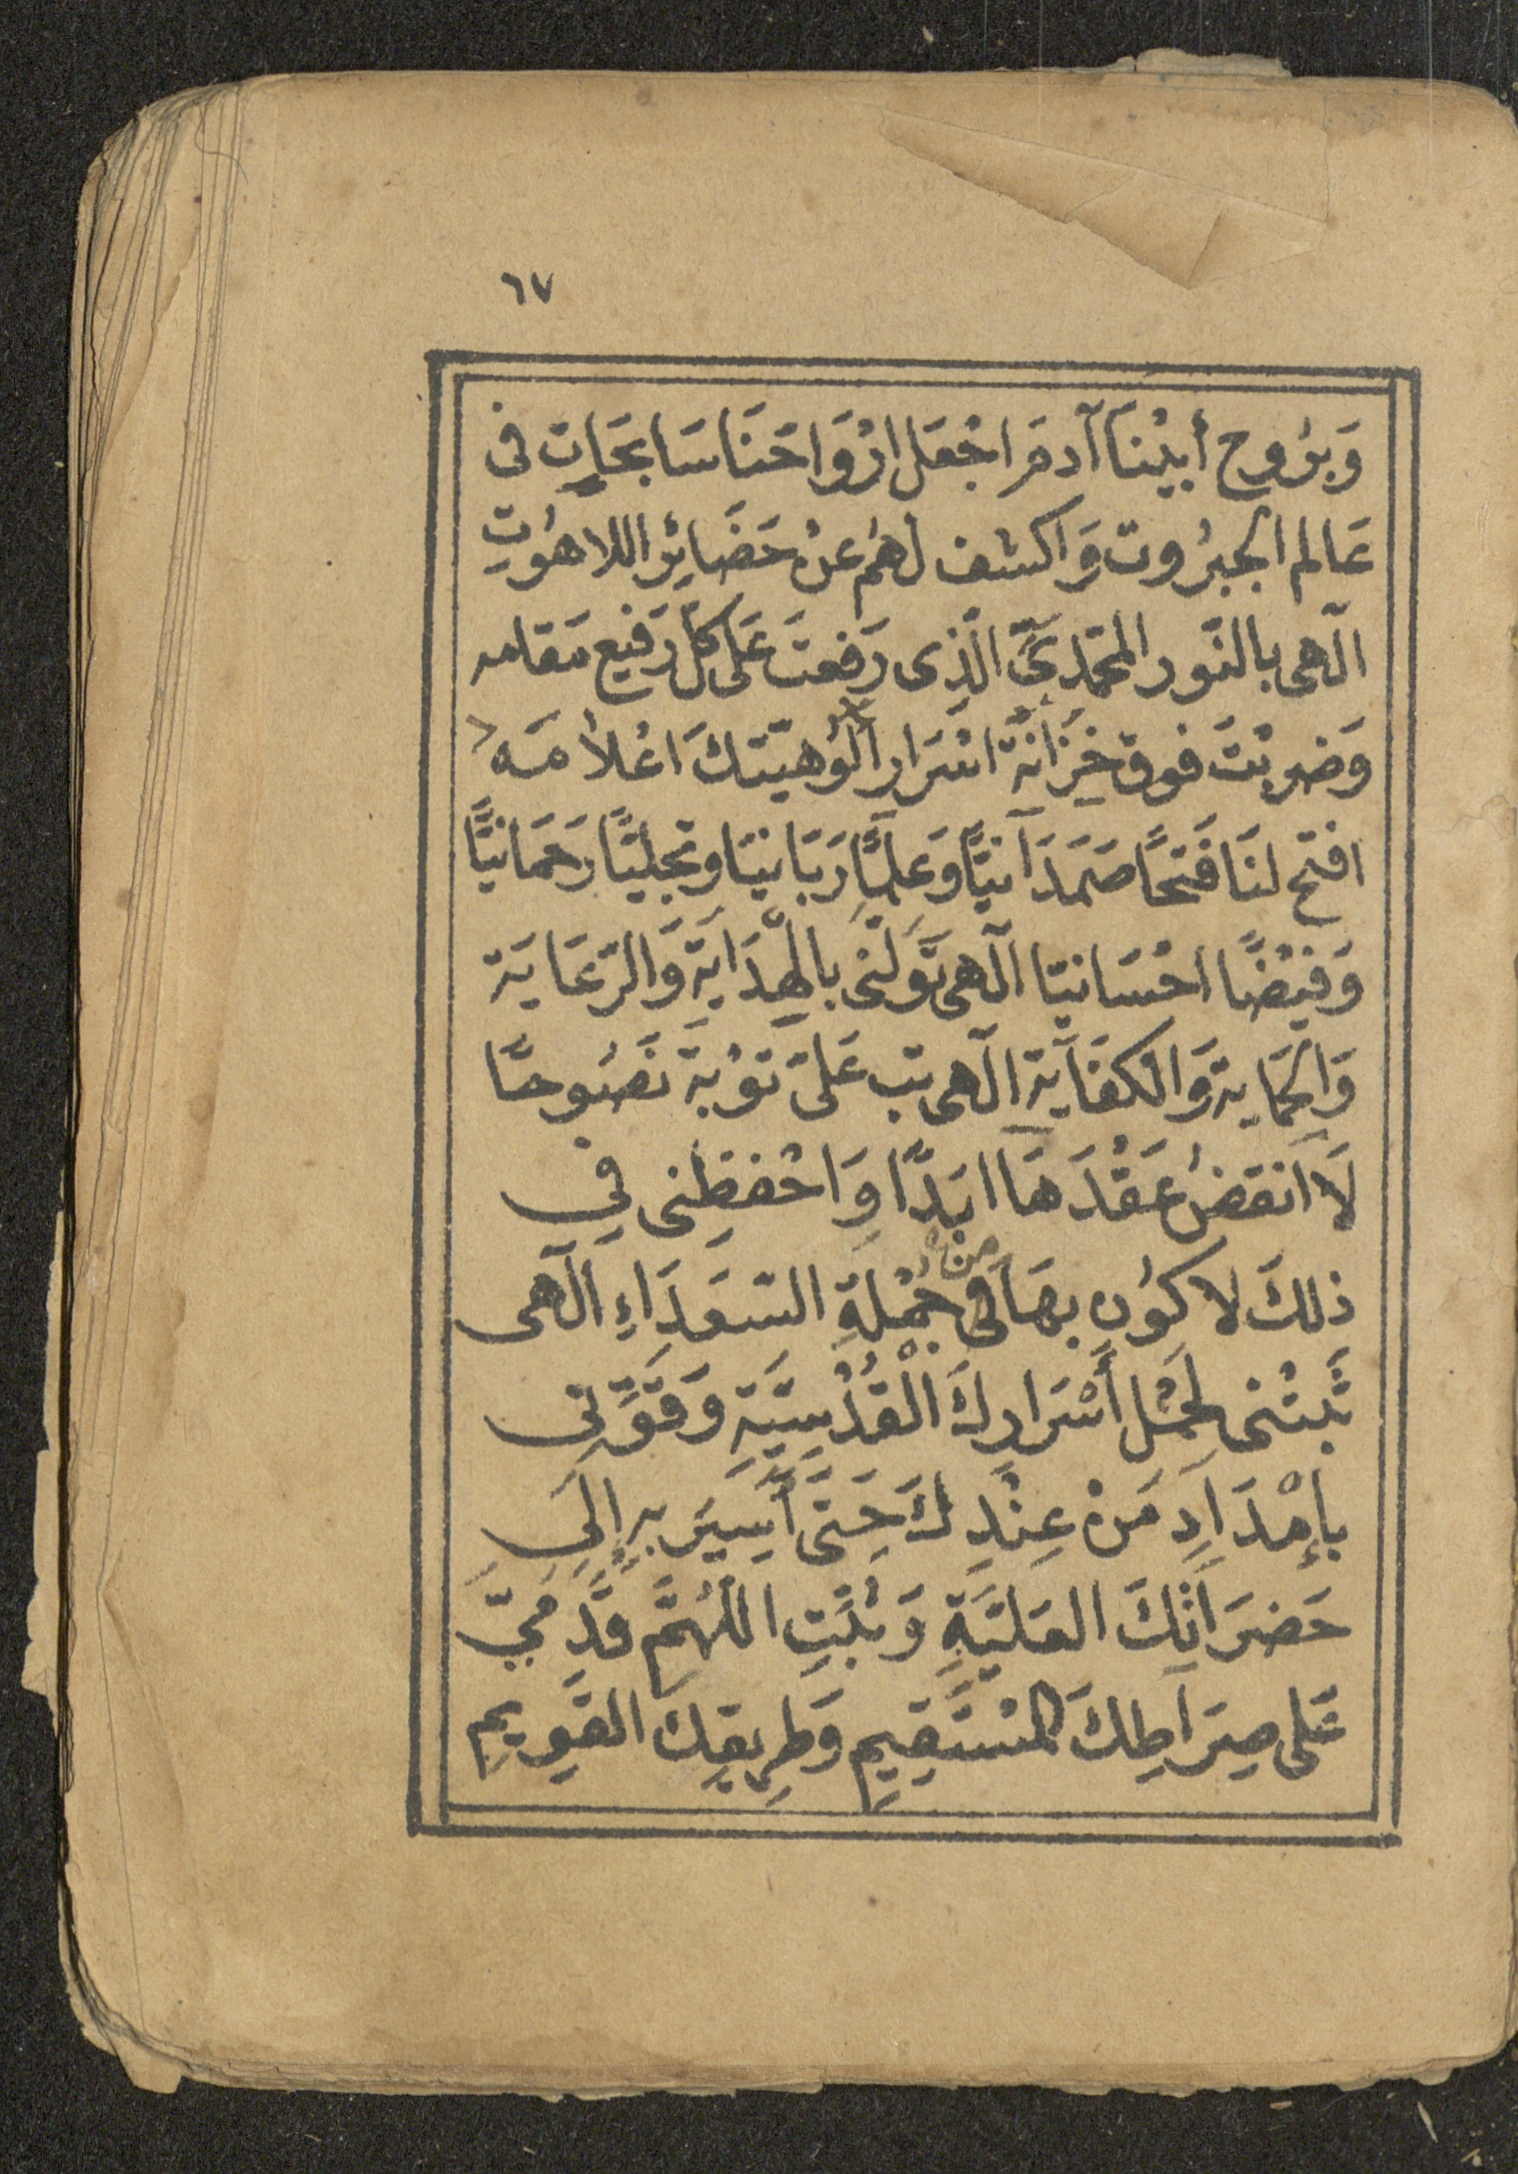 ٦٧
وَبرُوح أبيْنَا آدمَ اجْعَل ارْوَاحَنَا سَابحَاتِ فى
عَالم الجبرُوت وَاكشف لهُم عنْ حَضَائِر اللاهُوتِ
الٓهى بالنّور المحمّدىِّ الّذِى رَفعتَ عَلى كلّ رَفيع مَقامه
وَضربْتَ فوق خِزَانَة اسْرَارِ ألُوهيّتكَ اعْلامَه
افتح لنَا فَتحًا صَمَدَانيًّا وَعلمًا رَبَانيَا وتجليًّا رَحمَانيًّا
وَفيْضًا احْسَانيّا الٓهى تَوَلّنى بالهِدَايَة وَالرّعَايَة
وَالحِمَاية وَالكفَايَة الٓهى تب عَلىّ توْبة نَصُوحًا
لَا انقضُ عَقْدَهَا ابَدًا وَاحْفظِنى فِي
ذلكَ لاكوُن بهَا فى من جُمْلةِ السّعَدَاءِ الٓهى
ثَبّتْنى لحَمْل أَسْرَارِكَ الْقُدْسِيَّةِ وَقَوِّنِى
بإمْدَادٍ مَنْ عِنْدِكَ حَتَى أَسِيَر بهِ إلَى
حَضرَاتِكَ العَليَّةِ وَثَبِّتِ اللّهُمَّ قَدَمَىَّ
عَلى صِرَاطِكَ المسْتَقِيمِ وَطرِيقِكَ القَوِيمِ